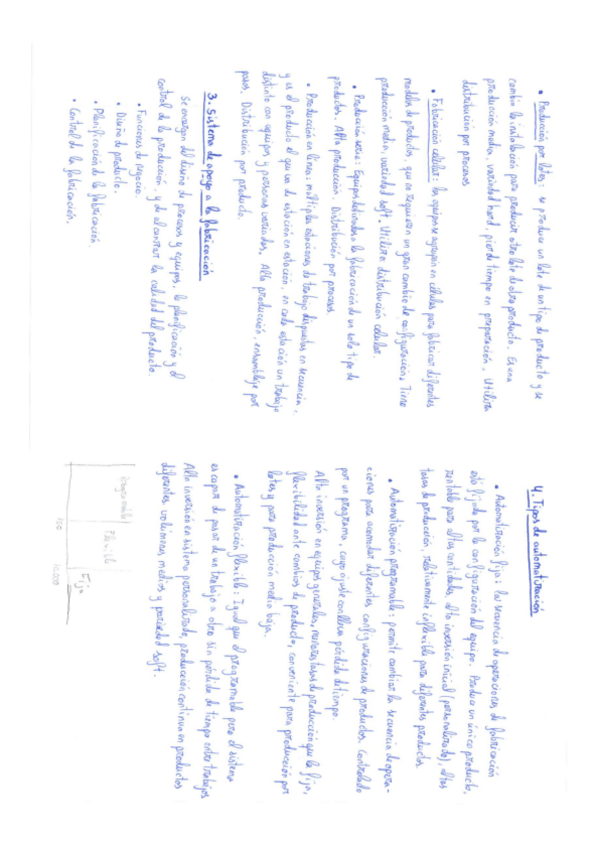 • Producción por lotes: se produce un lote de un tipo de producto y se
cambia la instalación para producir otro lote de otro producto. Es una
producción media, variedad hard, pierde tiempo en preparación. Utiliza
distribución por procesos
• Fabricación celular: los equipos se agrupan en células para fabricar diferentes
modelos de productos, que no requieren un gran cambio de configuración. Tiene
producción media, variedad soft. Utiliza distribución celular.
• Produccion serie: Equipos destinados a la fabricación de un solo tipo de
productos. Alta producción. Distribución por procesos
• Producción en línea: múltiples estaciones de trabajo dispuestas en secuencia,
y es el producto el que va de estación en estación, en cada estación un trabajo
distinto con equipos y personas variadas. Alta producción, ensamblaje por
pasos. Distribución por producto.
3. Sistema de apoyo a la fabricación
Se encargan del diseño de procesos y equipos, la planificación y el
control de la producción y de alcanzar la calidad del producto.
• Funciones de negocio.
• Diseño de producto.
• Planificación de la fabricación
• Control de la fabricación.
4. Tipos de automatización
• Automatización fija: la secuencia de operaciones de fabricación
está fijada por la configuración del equipo. Produce un único producto,
rentable para altas cantidades, alta inversión inicial (personalizado), altas
tasas de producción, relativamente inflexible para diferentes productos.
• Automatización programable: permite cambiar la secuencia de opera-
ciones para acomodar diferentes configuraciones de productos. Controlado
por un programa, cuyo ajuste conlleva pérdida de tiempo.
Alta inversión en equipos generales, menores tasas de producción que la fija,
flexibilidad ante cambios de producto, conveniente para producción por
lotes y para producción media baja.
• Automatización flexible: Igual que el programable pero el sistema
es capaz de pasar de un trabajo a otro sin pérdida de tiempo entre trabajos
Alta inversión en sistema personalizado, producción continua en productos
diferentes, volúmenes medios y variedad soft.
Programable
Flexible
Fija
100
10.000